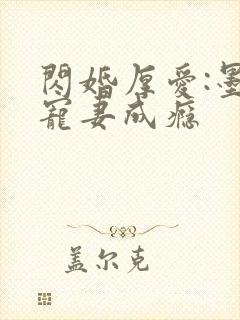 閃婚厚愛:墨
寵妻成癮
盖尔克